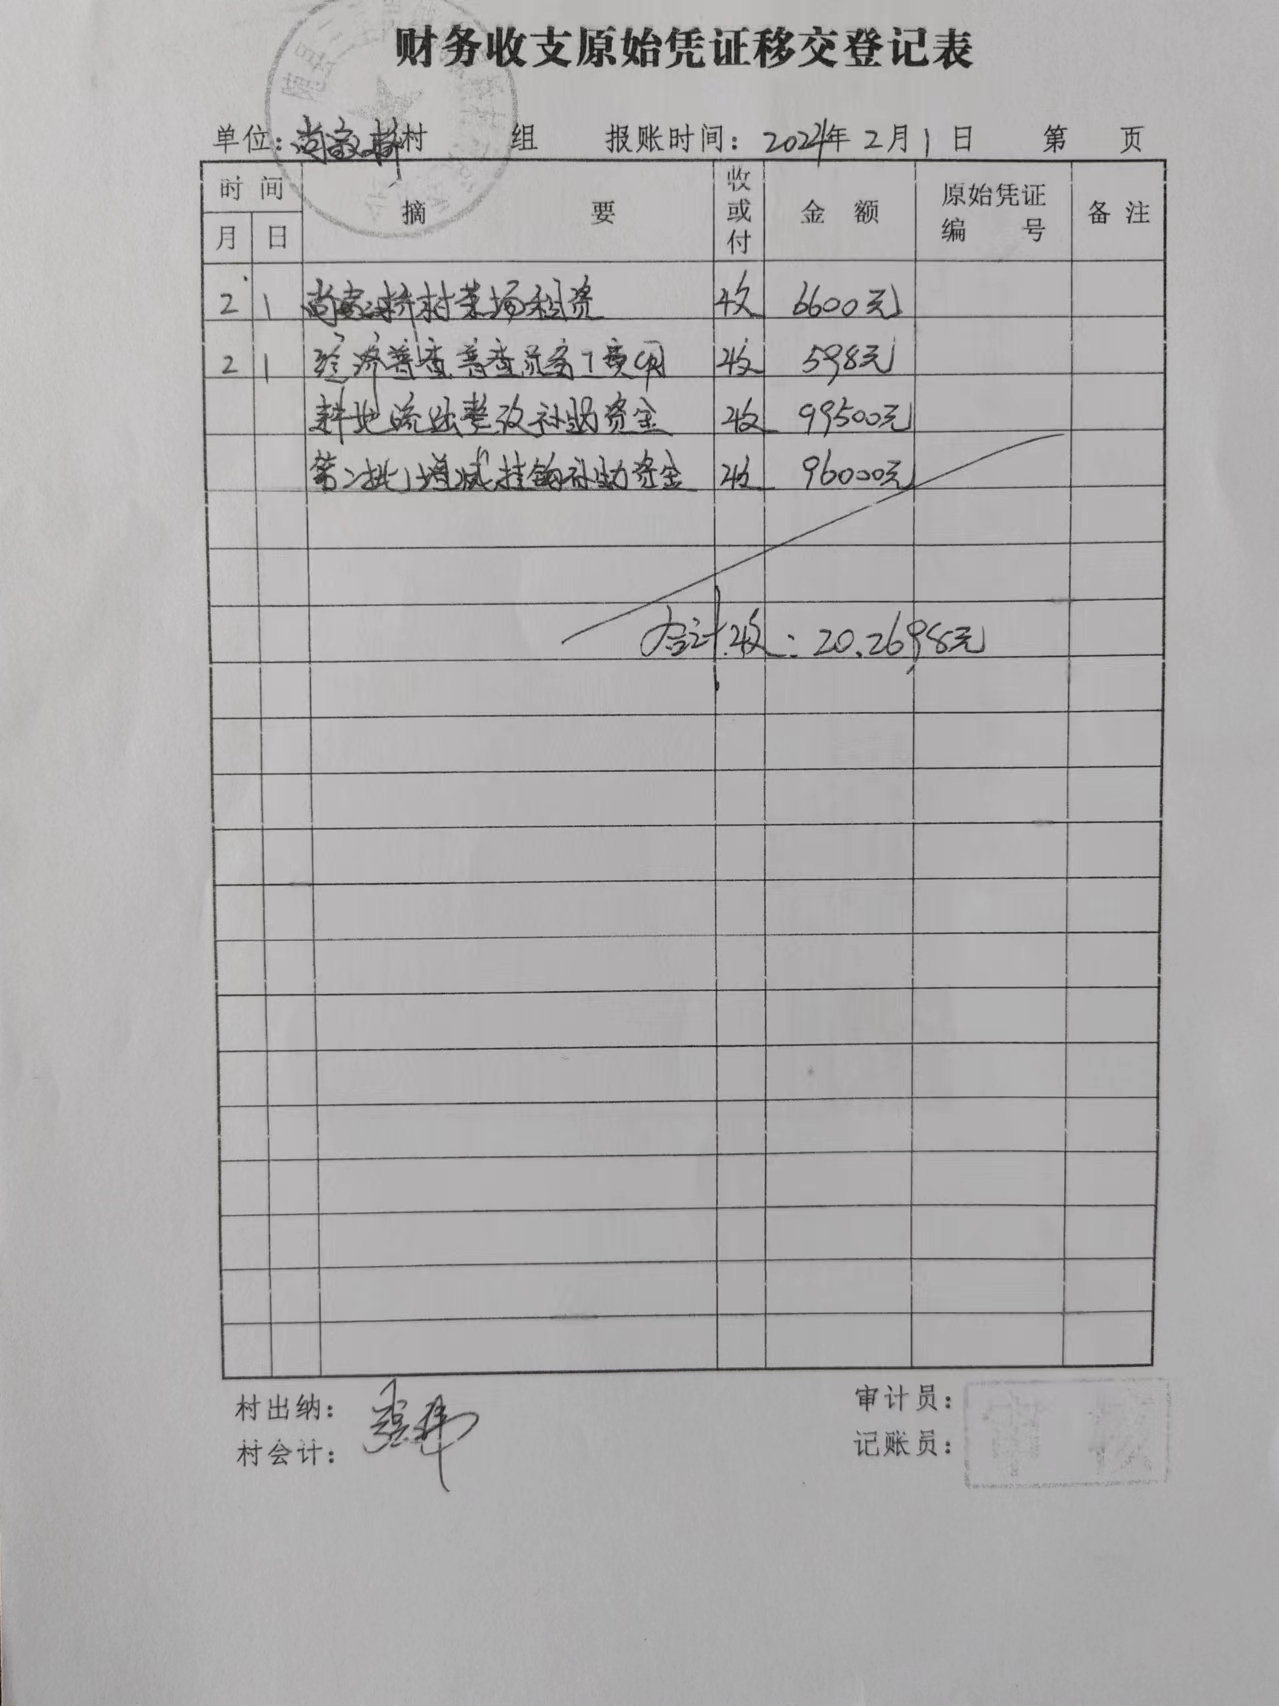 财务收支原始凭证移交登记表
单位：尚家桥村 组 报账时间：2024年2月1日 第 页
时间 摘要 收或付 金额 原始凭证编号 备注
月 日
2 1 尚家桥村菜场租资 收 6600元
2 1 经济普查普查员务工费用 收 598元
耕地流出整改补助资金 收 99500元
第二批增减挂钩补助资金 收 96000元
合计收：20.2698元
村出纳： 审计员：
村会计： 记账员：
审 核